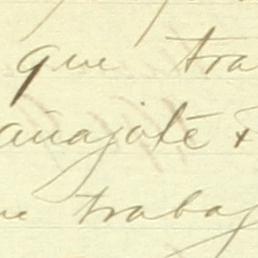 que tra
anajote
trabaj